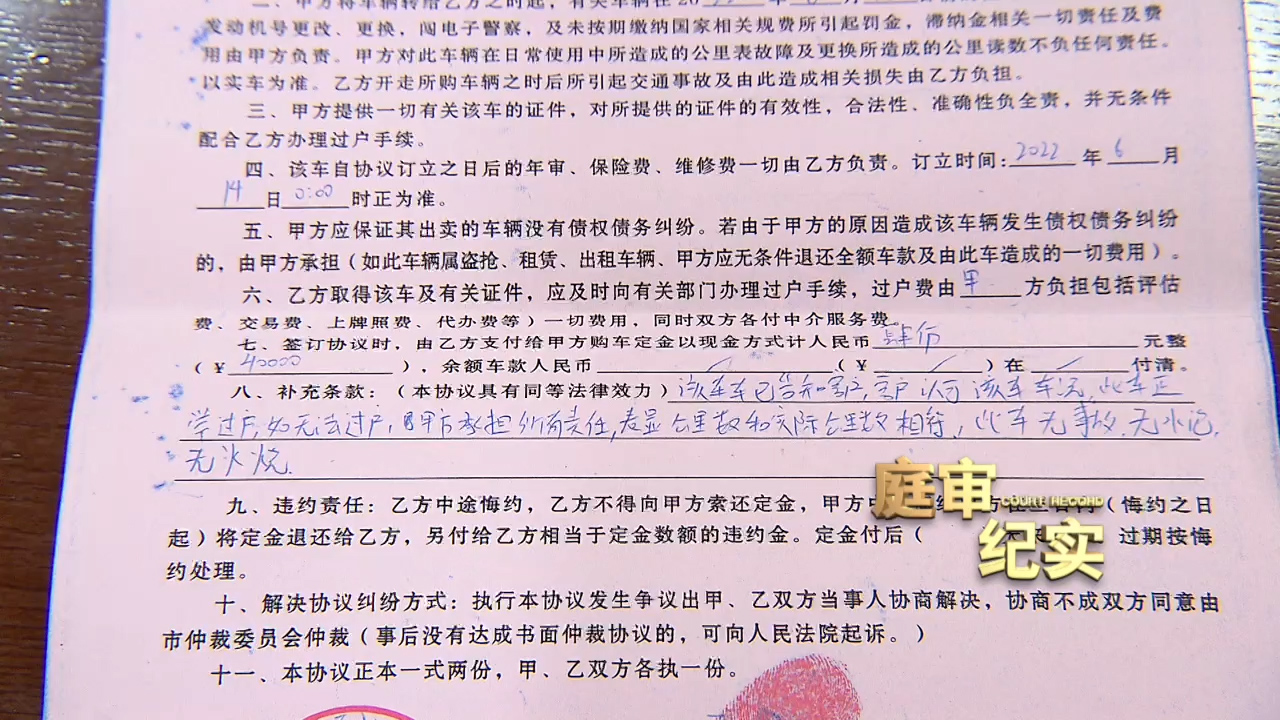 二、甲方将车辆转给乙方之时起，有关车辆在20
发动机号更改、更换，闯电子警察，及未按期缴纳国家相关规费所引起罚金，滞纳金相关一切责任及费
用由甲方负责。甲方对此车辆在日常使用中所造成的公里表故障及更换所造成的公里读数不负任何责任。
以实车为准。乙方开走所购车辆之时后所引起交通事故及由此造成相关损失由乙方负担。
三、甲方提供一切有关该车的证件，对所提供的证件的有效性，合法性、准确性负全责，并无条件
配合乙方办理过户手续。
四、该车自协议订立之日后的年审、保险费、维修费一切由乙方负责。订立时间：2022年6月
14日0:00时正为准。
五、甲方应保证其出卖的车辆没有债权债务纠纷。若由于甲方的原因造成该车辆发生债权债务纠纷
的，由甲方承担（如此车辆属盗抢、租赁、出租车辆、甲方应无条件退还全额车款及由此车造成的一切费用）。
六、乙方取得该车及有关证件，应及时向有关部门办理过户手续，过户费由甲方负担包括评估
费、交易费、上牌照费、代办费等）一切费用，同时双方各付中介服务费。
七、签订协议时，由乙方支付给甲方购车定金以现金方式计人民币肆仟元整
（￥40000），余额车款人民币/（￥/）在/付清。
八、补充条款：（本协议具有同等法律效力）该车车已告知客户，客户认可该车车况，此车正
常过户，如无法过户，由甲方承担所有责任，表显公里数和实际公里数相符，此车无事故，无水泡，
无火烧.
九、违约责任：乙方中途悔约，乙方不得向甲方索还定金，甲方中（悔约之日
起）将定金退还给乙方，另付给乙方相当于定金数额的违约金。定金付后（过期按悔
约处理。
十、解决协议纠纷方式：执行本协议发生争议出甲、乙双方当事人协商解决，协商不成双方同意由
市仲裁委员会仲裁（事后没有达成书面仲裁协议的，可向人民法院起诉。）
十一、本协议正本一式两份，甲、乙双方各执一份。
庭审
COURT RECORD
纪实